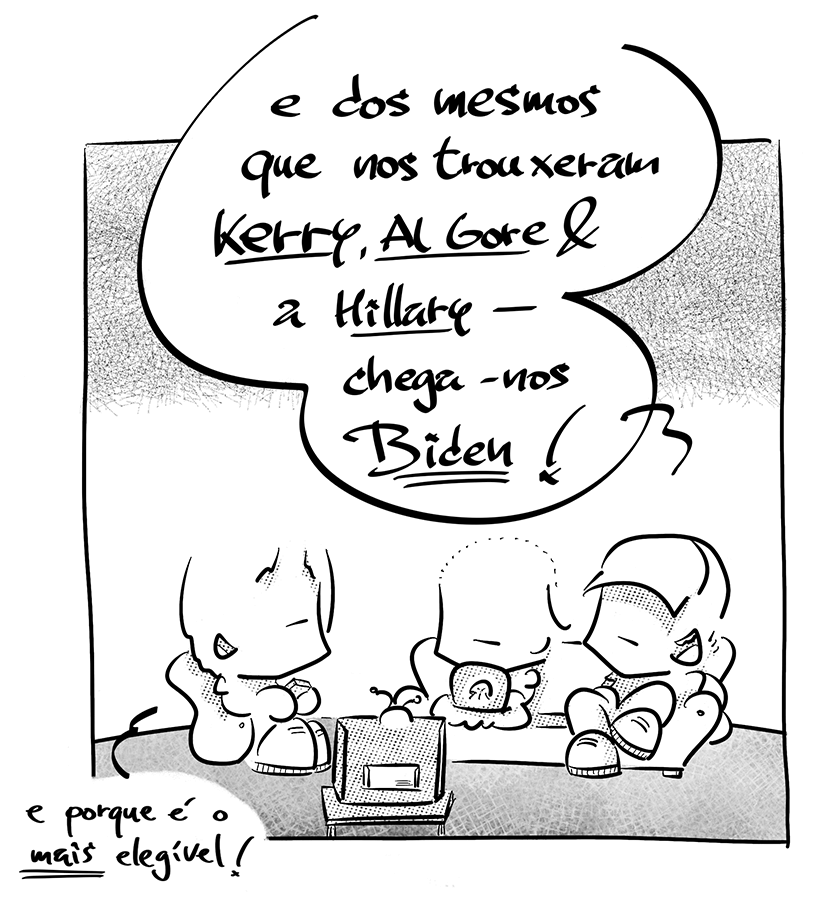 e dos mesmos
que nos trouxeram
Kerry, Al Gore &
a Hillary —
chega-nos
Biden!
e porque é o
mais elegível!